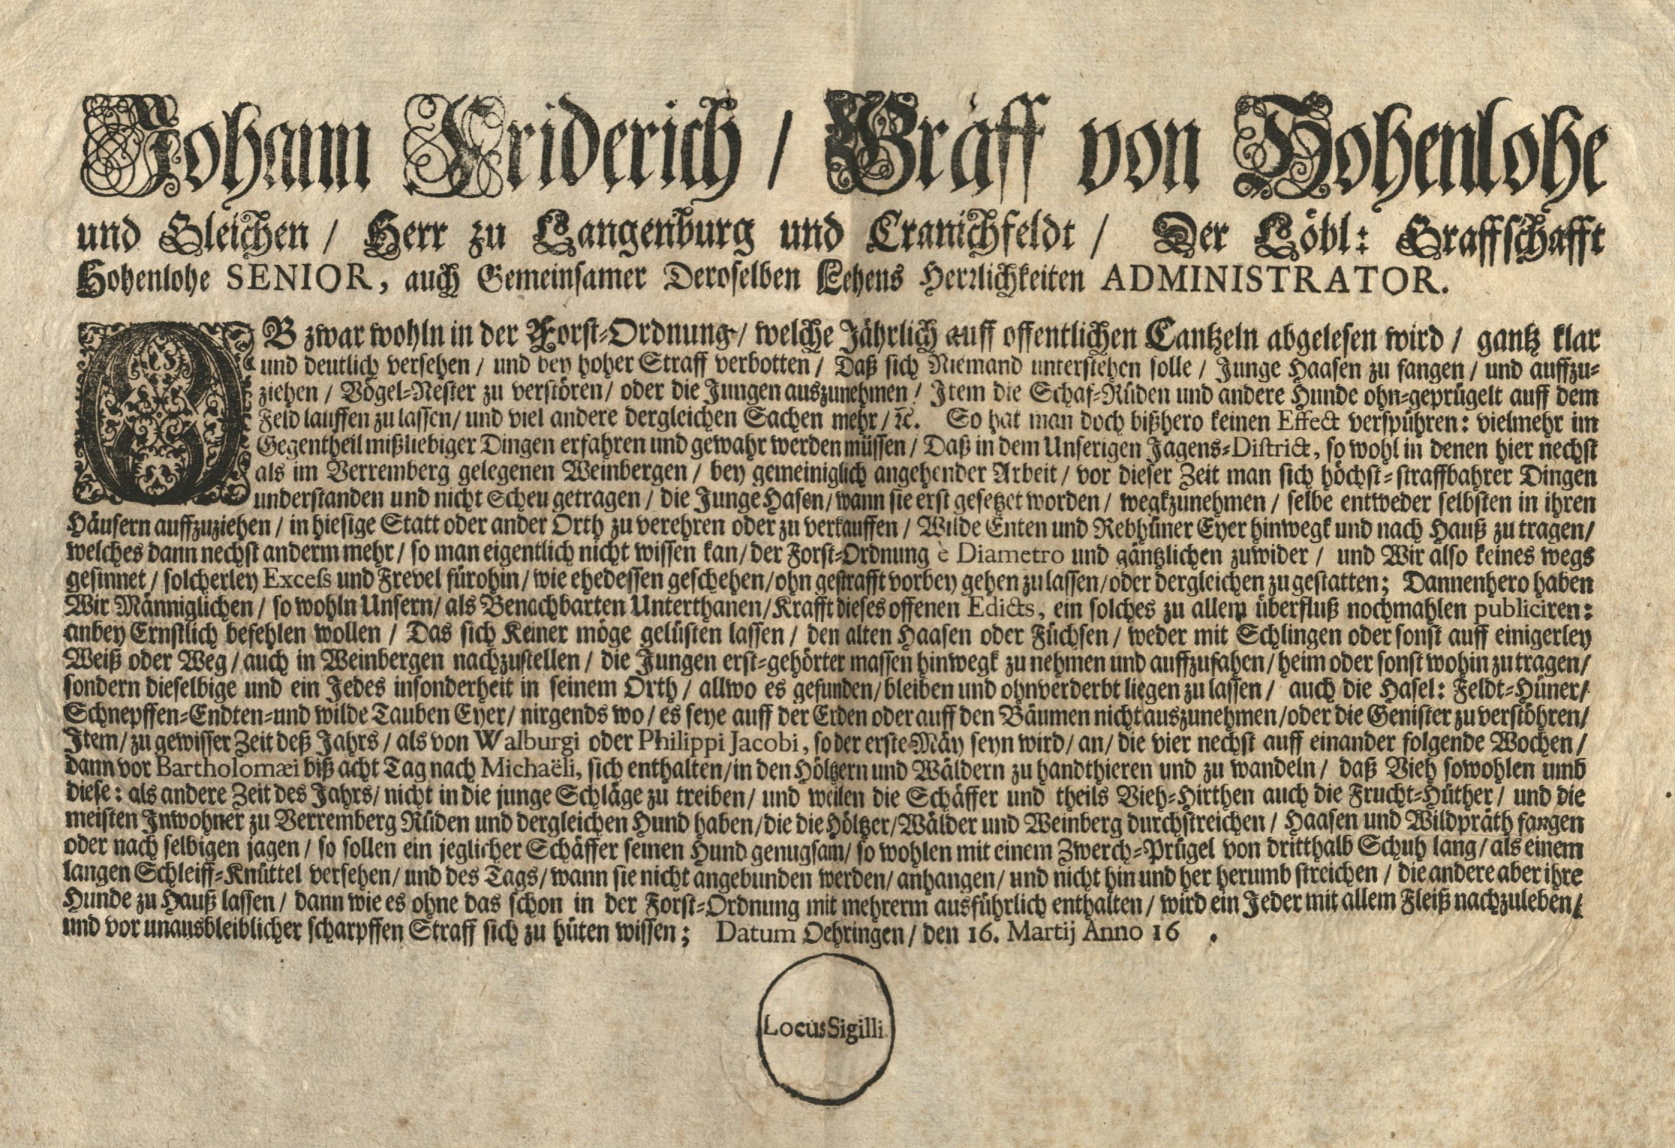 Johann Friderich / Graff von Hohenlohe
und Gleichen / Herr zu Langenburg und Cranichfeldt / Der Löbl: Graffschafft
Hohenlohe SENIOR, auch Gemeinsamer Deroselben Lehens Herrlichkeiten ADMINISTRATOR.
OB zwar wohln in der Forst-Ordnung / welche Jährlich auff offentlichen Cantzeln abgelesen wird / gantz klar
und deutlich versehen / und bey hoher Straff verbotten / Daß sich Niemand unterstehen solle / Junge Haasen zu fangen / und auffzu-
ziehen / Vögel-Nester zu verstören / oder die Jungen auszunehmen / Item die Schaf-Rüden und andere Hunde ohn-geprügelt auff dem
Feld lauffen zu lassen / und viel andere dergleichen Sachen mehr / ꝛc. So hat man doch bißhero keinen Effect verspühren: vielmehr im
Gegentheil mißliebiger Dingen erfahren und gewahr werden müssen / Daß in dem Unserigen Jagens-District, so wohl in denen hier nechst
als im Verremberg gelegenen Weinbergen / bey gemeiniglich angehender Arbeit / vor dieser Zeit man sich höchst-straffbahrer Dingen
understanden und nicht Scheu getragen / die Junge Hasen / wann sie erst gesetzet worden / wegkzunehmen / selbe entweder selbsten in ihren
Häusern auffzuziehen / in hiesige Statt oder ander Orth zu verehren oder zu verkauffen / Wilde Enten und Rebhüner Eyer hinwegk und nach Hauß zu tragen /
welches dann nechst anderm mehr / so man eigentlich nicht wissen kan / der Forst-Ordnung è Diametro und gäntzlichen zuwider / und Wir also keines wegs
gesinnet / solcherley Excess und Frevel fürohin / wie ehedessen geschehen / ohn gestrafft vorbey gehen zu lassen / oder dergleichen zu gestatten; Dannenhero haben
Wir Männiglichen / so wohln Unsern / als Benachbarten Unterthanen / Krafft dieses offenen Edicts, ein solches zu allem überfluß nochmahlen publiciren:
anbey Ernstlich befehlen wollen / Das sich Keiner möge gelüsten lassen / den alten Haasen oder Füchsen / weder mit Schlingen oder sonst auff einigerley
Weiß oder Weg / auch in Weinbergen nachzustellen / die Jungen erst-gehörter massen hinwegk zu nehmen und auffzufahen / heim oder sonst wohin zu tragen /
sondern dieselbige und ein Jedes insonderheit in seinem Orth / allwo es gefunden / bleiben und ohnverderbt liegen zu lassen / auch die Hasel: Feldt-Hüner /
Schnepffen-Endten-und wilde Tauben Eyer / nirgends wo / es seye auff der Erden oder auff den Bäumen nicht auszunehmen / oder die Genister zu verstöhren /
Item / zu gewisser Zeit deß Jahrs / als von Walburgi oder Philippi Jacobi, so der erste May seyn wird / an / die vier nechst auff einander folgende Wochen /
dann vor Bartholomæi biß acht Tag nach Michaëli, sich enthalten / in den Höltzern und Wäldern zu handthieren und zu wandeln / daß Vieh sowohlen umb
diese: als andere Zeit des Jahrs / nicht in die junge Schläge zu treiben / und weilen die Schäffer und theils Vieh-Hirthen auch die Frucht-Hüther / und die
meisten Inwohner zu Verremberg Rüden und dergleichen Hund haben / die die Höltzer / Wälder und Weinberg durchstreichen / Haasen und Wildpräth fangen
oder nach selbigen jagen / so sollen ein jeglicher Schäffer seinen Hund genugsam / so wohlen mit einem Zwerch-Prügel von dritthalb Schuh lang / als einem
langen Schleiff-Knüttel versehen / und des Tags / wann sie nicht angebunden werden / anhangen / und nicht hin und her herumb streichen / die andere aber ihre
Hunde zu Hauß lassen / dann wie es ohne das schon in der Forst-Ordnung mit mehrerm ausführlich enthalten / wird ein Jeder mit allem Fleiß nachzuleben /
und vor unausbleiblicher scharpffen Straff sich zu hüten wissen; Datum Oehringen / den 16. Martij Anno 16 .
Locus Sigilli.